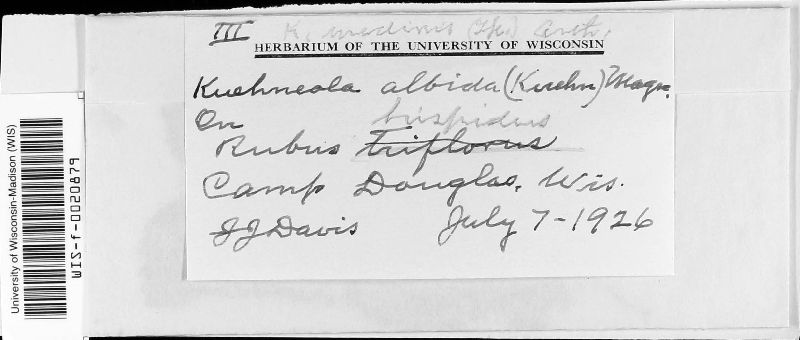 III K. uredinis (Lk.) Arth.
HERBARIUM OF THE UNIVERSITY OF WISCONSIN
Kuehneola albida (Kuehn) Magn.
On hispidus
Rubus triflorus
Camp Douglas, Wis.
JJ Davis July 7-1926
University of Wisconsin-Madison (WIS)
WIS-f-0020879